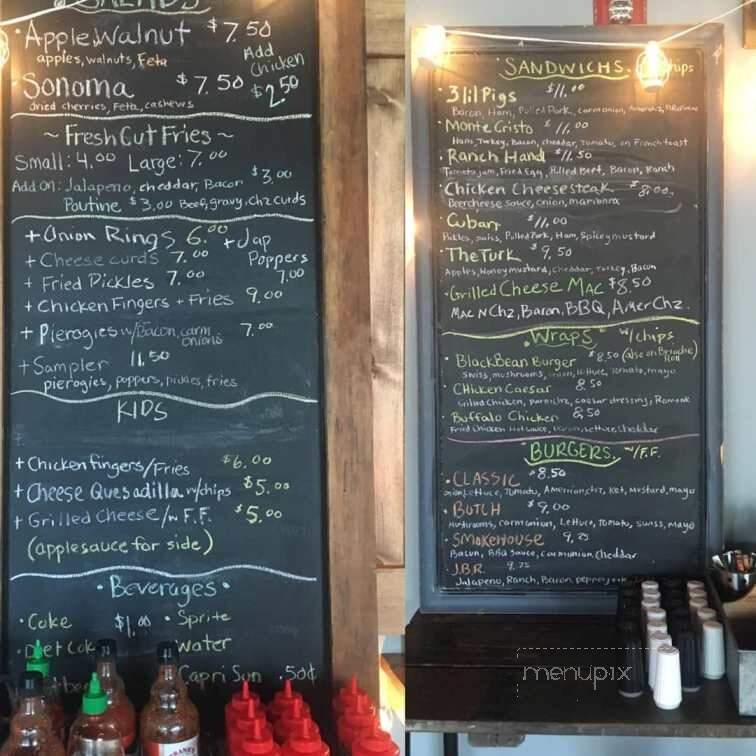 SALADS
• Apple Walnut $7.50
apples, walnuts, Feta
Add
Chicken
$2.50
Sonoma $7.50
dried cherries, Feta, cashews
~ Fresh Cut Fries ~
Small: 4.00 Large: 7.00
Add on: Jalapeno, cheddar, Bacon $3.00
Poutine $3.00 Beef, gravy, Chz curds
+ Onion Rings 6.00
+ Jap
Poppers
7.00
+ Cheese curds 7.00
+ Fried Pickles 7.00
+ Chicken Fingers + Fries 9.00
+ Pierogies w/Bacon, carm onions 7.00
+ Sampler 11.50
pierogies, poppers, pickles, fries
KIDS
+ Chicken fingers/Fries $6.00
+ Cheese Quesadilla w/chips $5.00
+ Grilled Cheese/w F.F. $5.00
(applesauce for side)
• Beverages •
• Coke $1.00 • Sprite
• Diet Coke water
Capri Sun .50¢
SANDWICHS. chips
• 3 lil Pigs $11.00
Bacon, Ham, Pulled Pork, carm onion,
• Monte Cristo $11.00
Ham, Turkey, Bacon, cheddar, tomato, on French toast
• Ranch Hand $11.50
Tomato jam, Fried Egg, Pulled Beef, Bacon, Ranch
• Chicken Cheesesteak $8.00
Beer cheese sauce, onion, marinara
• Cuban $11.00
Pickles, swiss, Pulled Pork, Ham, Spicy mustard
• The Turk $9.50
Apples, Honey mustard, cheddar, turkey, Bacon
• Grilled Cheese Mac $8.50
Mac N Chz, Bacon, BBQ, Amer Chz.
• Wraps • w/ chips
• Black Bean Burger $8.50 (also on Brioche Roll)
Swiss, mushrooms, onion, lettuce, tomato, mayo
• Chicken Caesar 8.50
Grilled Chicken, parm chz, caesar dressing, Romaine
• Buffalo Chicken 8.50
Fried Chicken Hot sauce, Bacon, Lettuce cheddar
• BURGERS • w/F.F.
• CLASSIC $8.50
onion, Lettuce, Tomato, American chz, Ket, Mustard, mayo
• BUTCH $9.00
Mushrooms, carm onion, Lettuce, Tomato, swiss, Mayo
• SMOKEHOUSE 9.25
Bacon, BBQ Sauce, carm onion, Cheddar
• J.B.R. 9.25
Jalapeno, Ranch, Bacon,
menupix